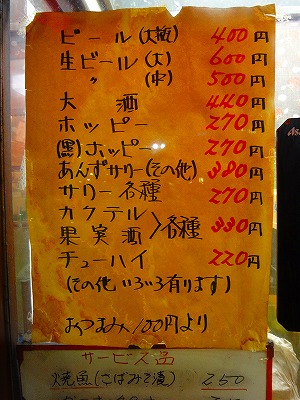 ビール(大瓶) 400円
生ビール(大) 600円
〃 (中) 500円
大酒 440円
ホッピー 270円
(黒)ホッピー 270円
あんずサワー(その他) 380円
サワー各種 270円
カクテル
果実酒 >各種 330円
チューハイ 220円
(その他いろいろ有ります)
おつまみ100円より
サービス品
焼魚(さばみそ漬) 250